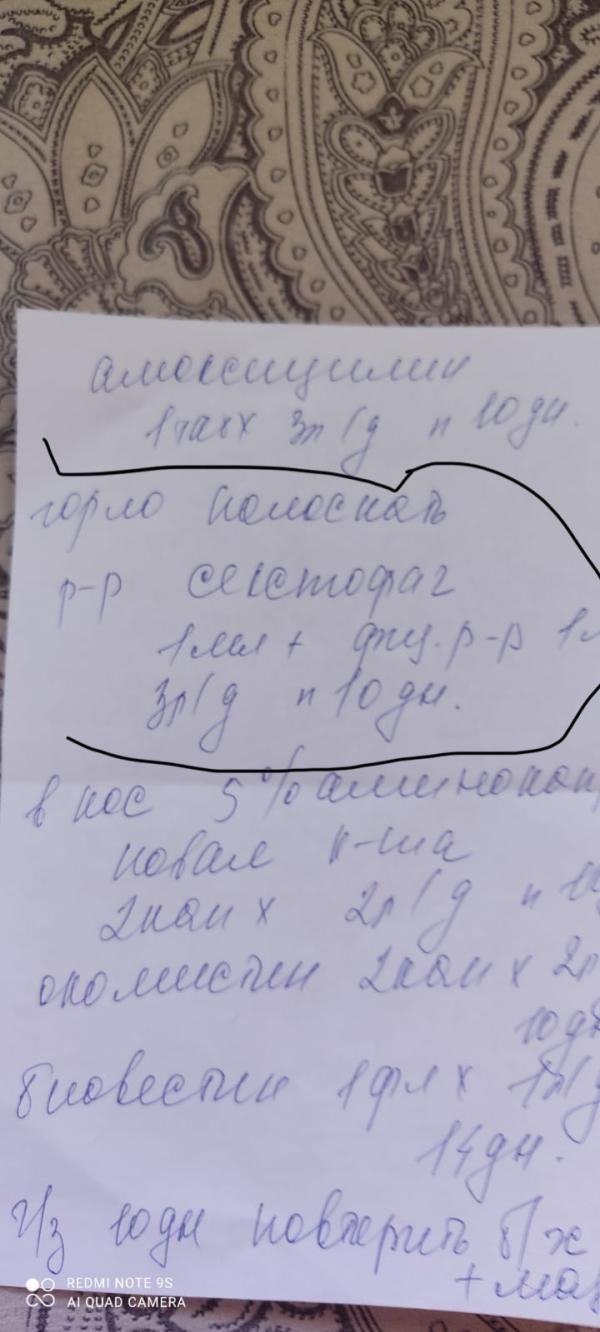 амоксициллин
1 таб х 3р/д n 10 дн.
горло полоскать
р-р секстафаг
1 мл + физ. р-р 1
3р/д n 10 дн.
в нос 5% аминокап
новая к-та
2 кап х 2р/д n
окомистин 2 кап х 2р
10 д
биовестин 1 фл х 1р/д
14 дн.
ч/з 10 дн повторить б/х
+ маз
REDMI NOTE 9S
AI QUAD CAMERA